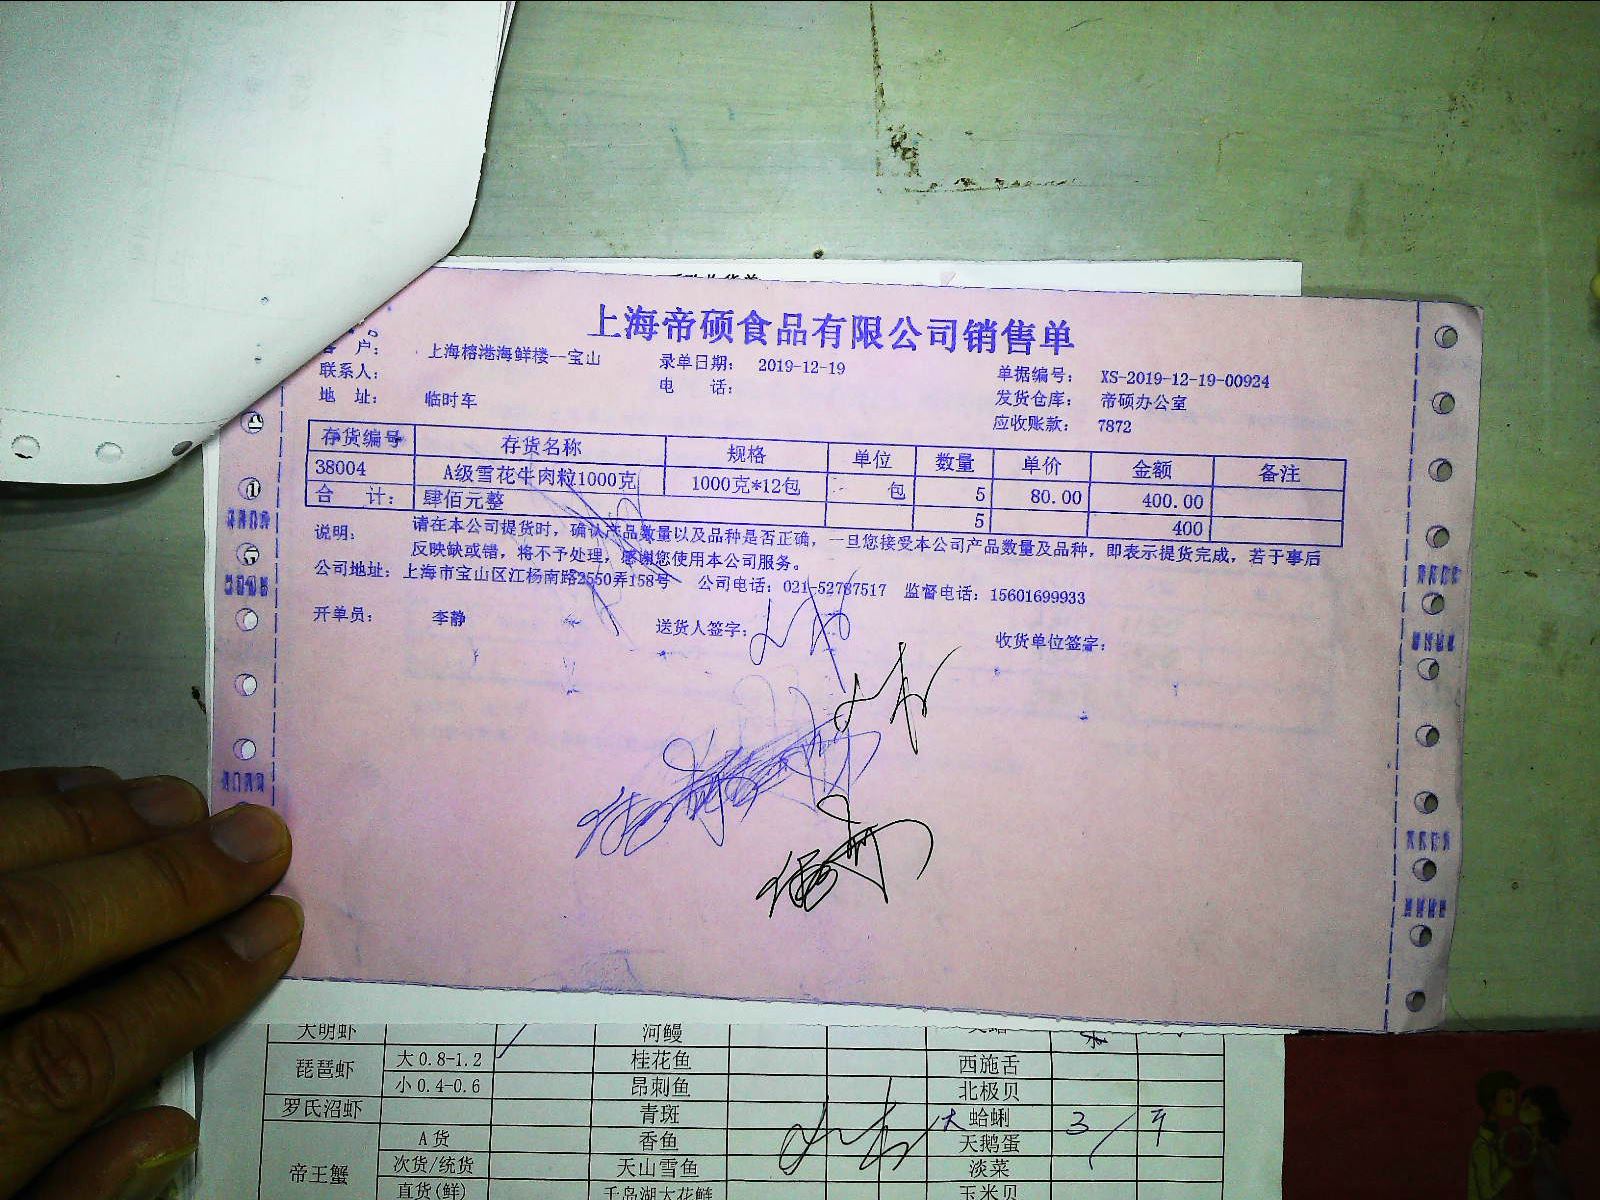 上海帝硕食品有限公司销售单
客 户： 上海榕港海鲜楼--宝山 录单日期： 2019-12-19 单据编号： XS-2019-12-19-00924
联系人： 电 话： 发货仓库： 帝硕办公室
地 址： 临时车 应收账款： 7872
存货编号 存货名称 规格 单位 数量 单价 金额 备注
38004 A级雪花牛肉粒1000克 1000克*12包 包 5 80.00 400.00
合 计： 肆佰元整 5 400
说明： 请在本公司提货时，确认产品数量以及品种是否正确，一旦您接受本公司产品数量及品种，即表示提货完成，若于事后
反映缺或错，将不予处理，感谢您使用本公司服务。
公司地址：上海市宝山区江杨南路2550弄158号 公司电话：021-52787517 监督电话：15601699933
开单员： 李静 送货人签字： 收货单位签字：
大明虾 河鳗
琵琶虾 大0.8-1.2 桂花鱼 西施舌
小0.4-0.6 昂刺鱼 北极贝
罗氏沼虾 青斑 大 蛤蜊 3
帝王蟹 A货 香鱼 天鹅蛋
次货/统货 天山雪鱼 淡菜
直货(鲜) 千岛湖大花鲢 玉米贝